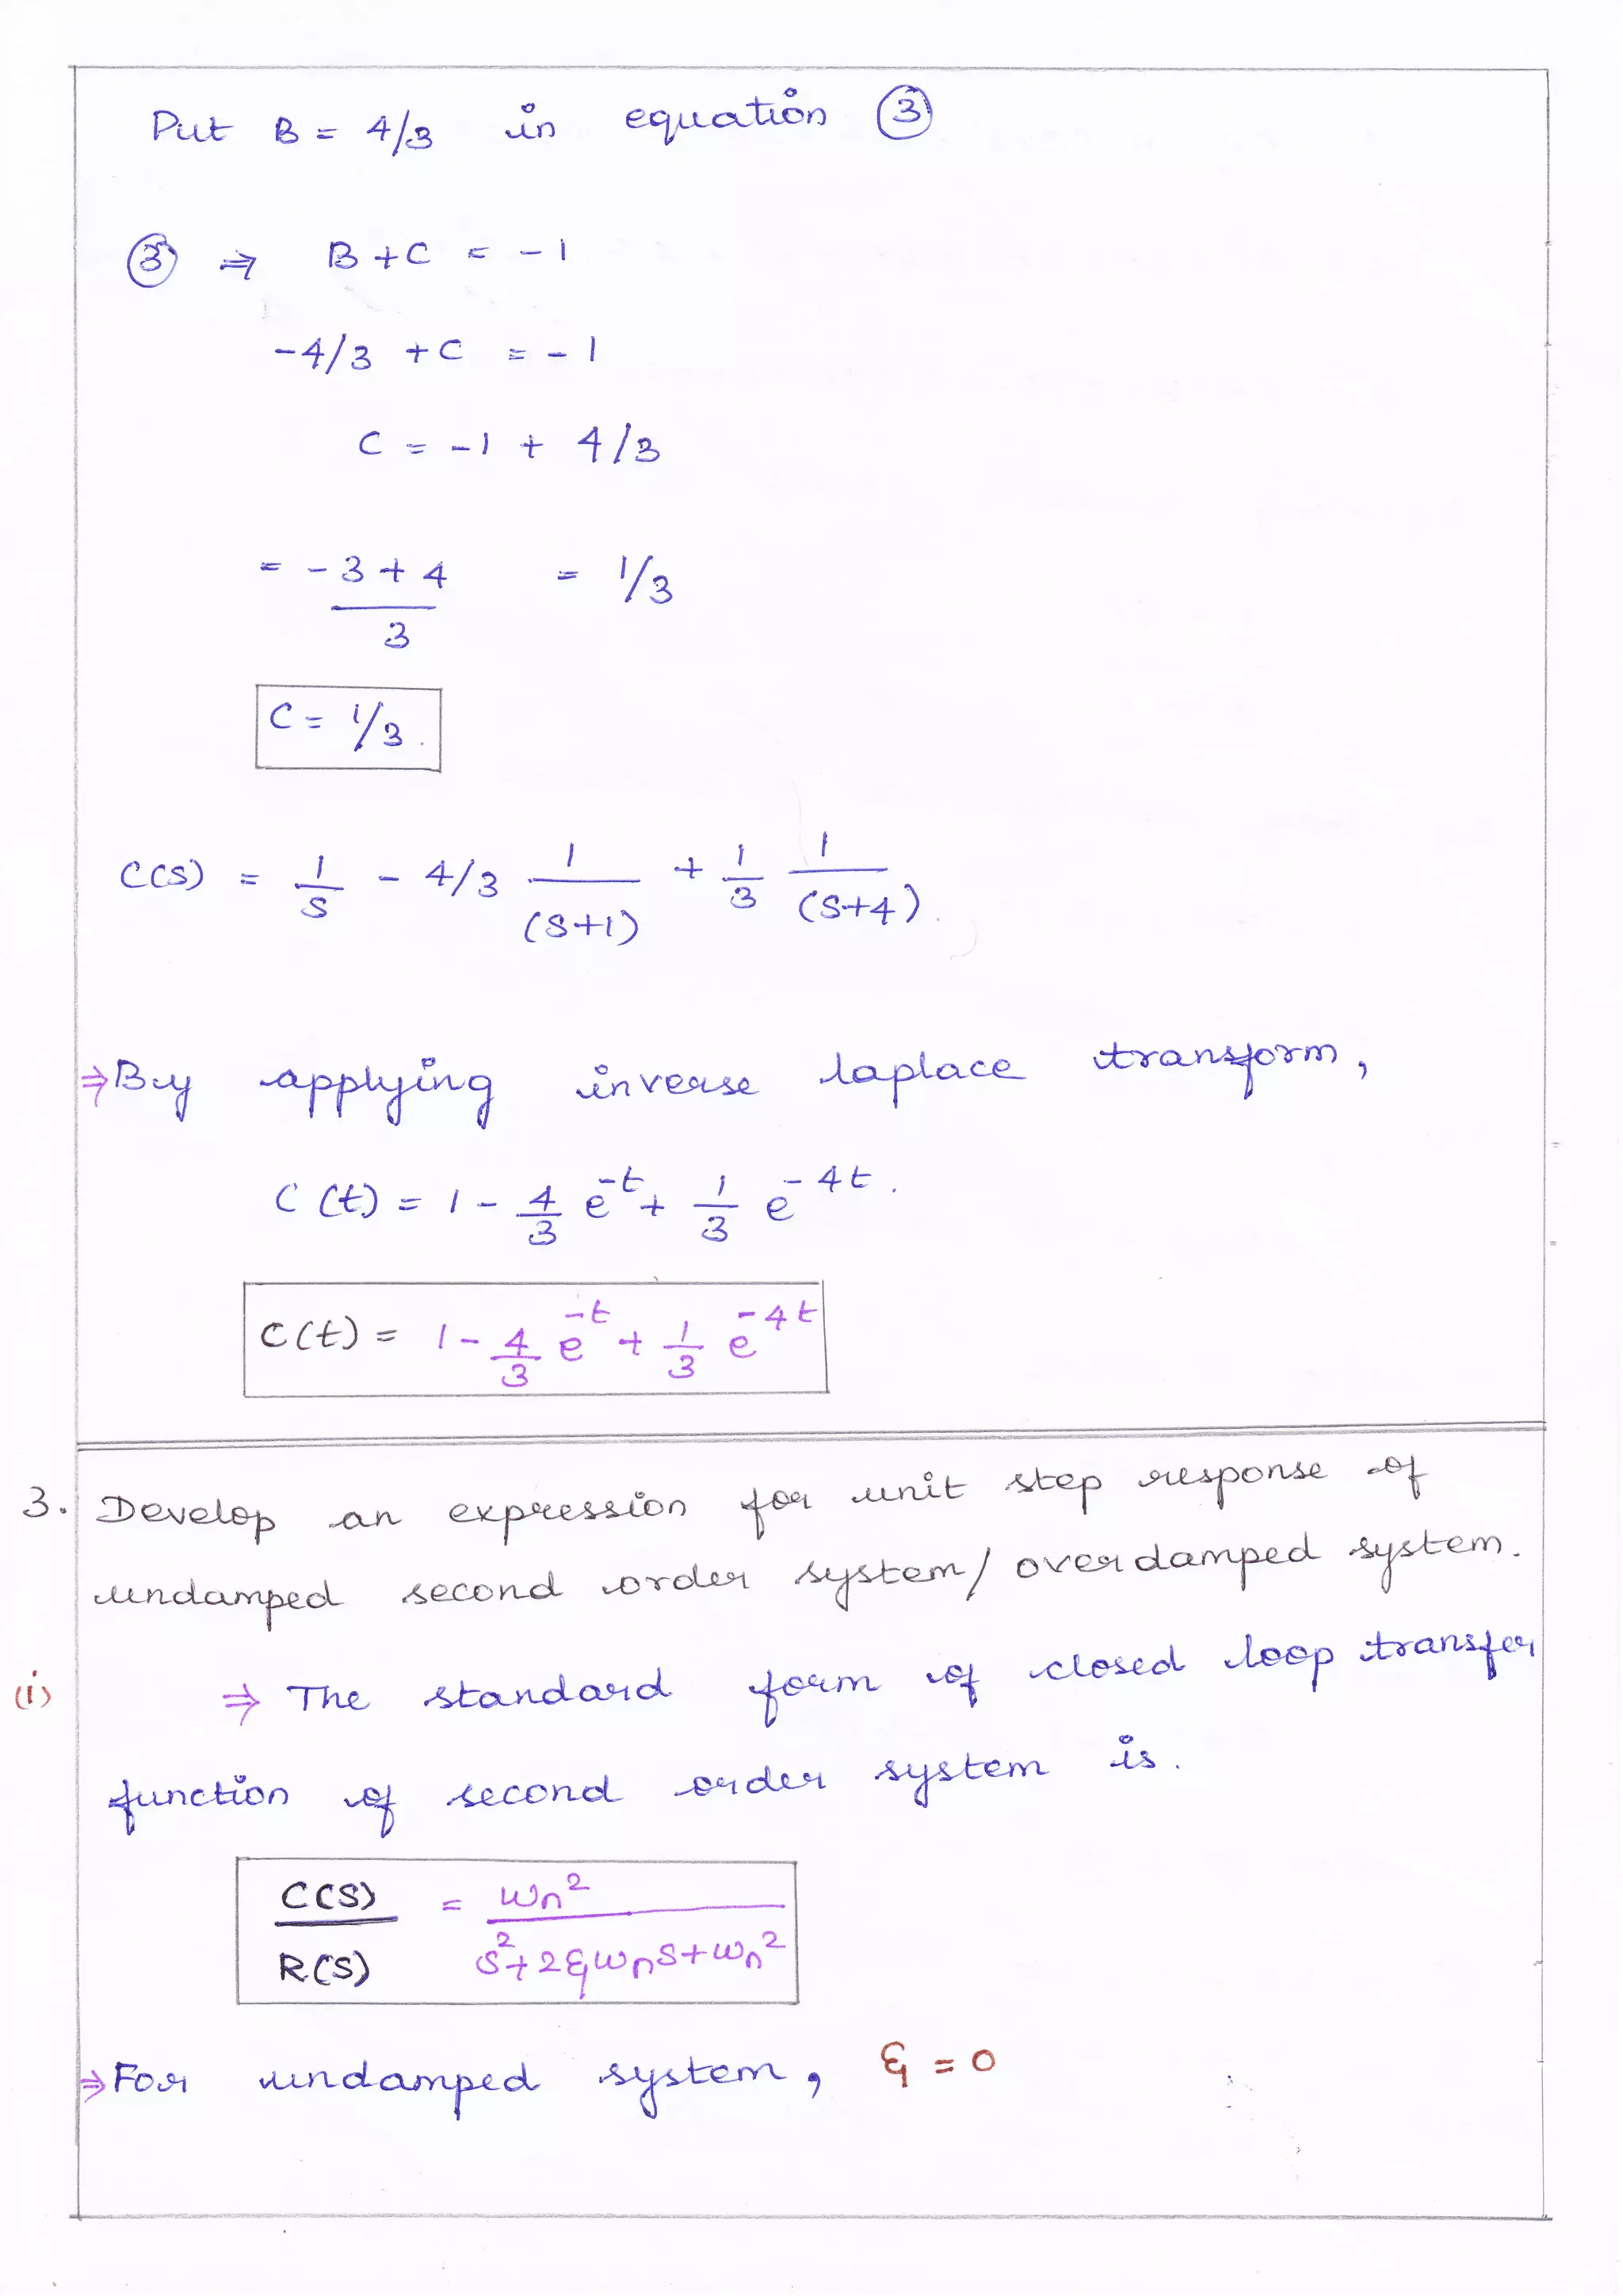 Put B = 4/3 in equation ③
③ ⇒ B + C = - 1
-4/3 + C = - 1
C = -1 + 4/3
= - 3 + 4 / 3 = 1/3
C = 1/3.
C(S) = 1/S - 4/3 1/(S+1) + 1/3 1/(S+4).
⇒ By applying inverse laplace transform,
C (t) = 1 - 4/3 e^-t + 1/3 e^-4t.
C(t) = 1 - 4/3 e^-t + 1/3 e^-4t
3. Develop an expression for unit step response of
undamped second order system/ overdamped system.
(i) ⇒ The standard form of closed loop transfer
function of second order system is.
C(S)/R(S) = ωn²/S²+2ξωnS+ωn²
⇒ For undamped system, ξ = 0